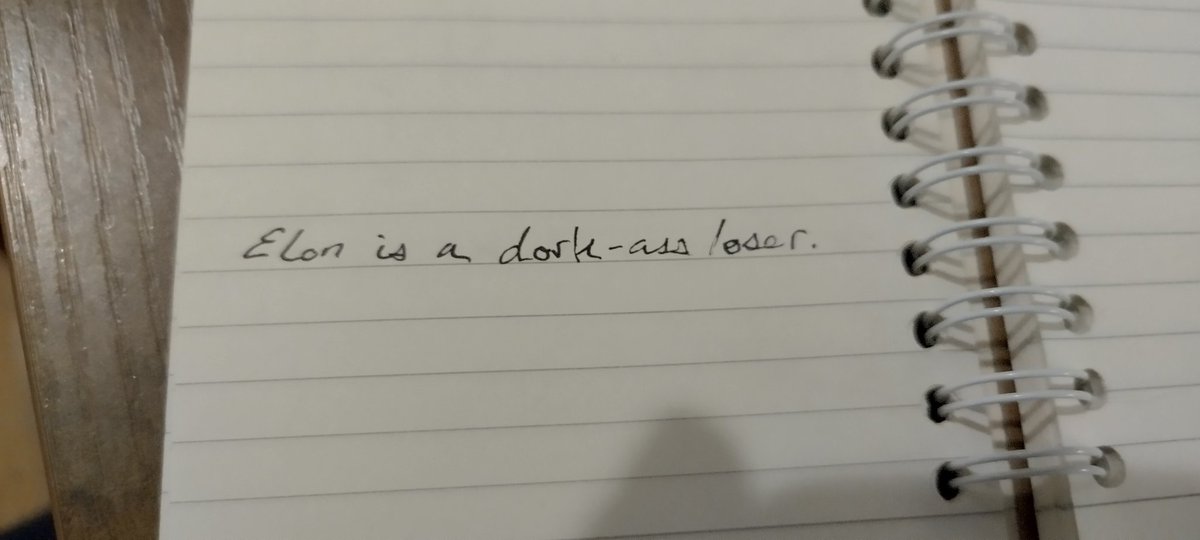 Elon is a dork-ass loser.